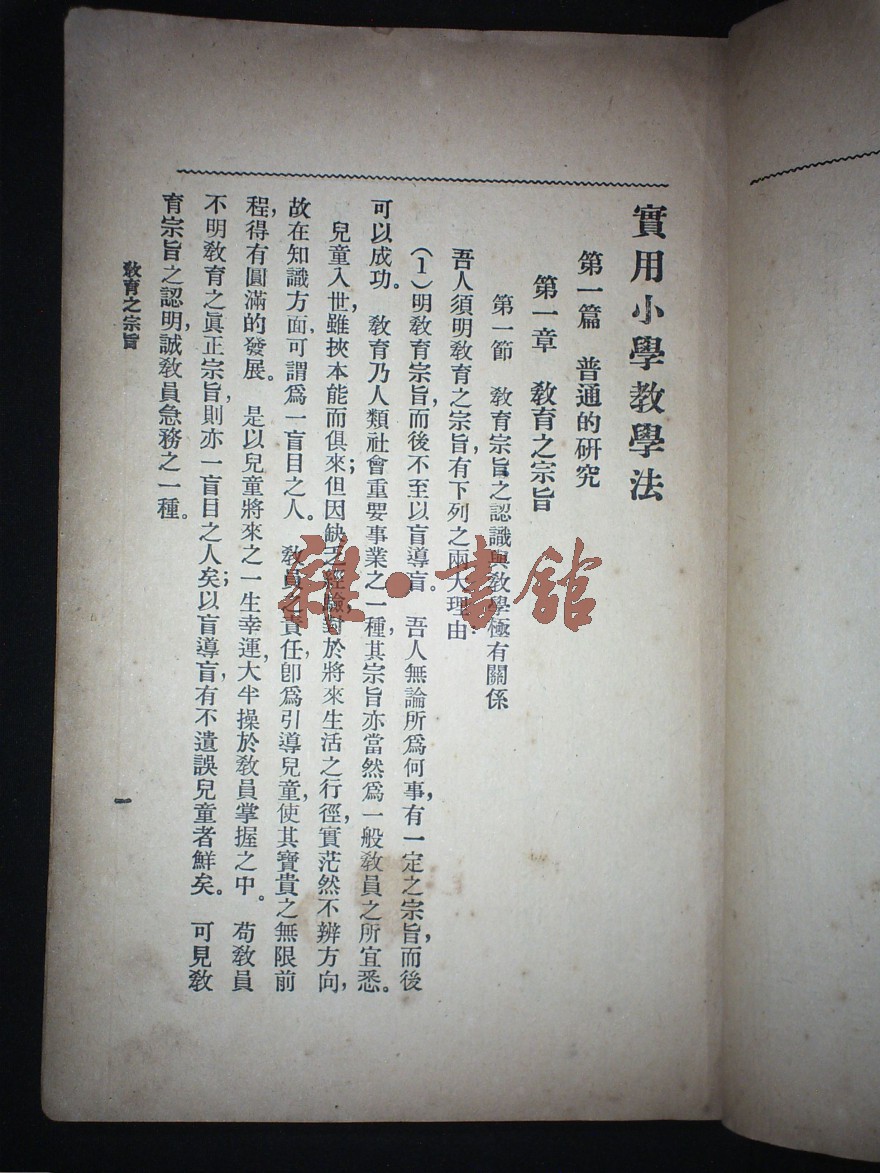 實用小學教學法
第一篇 普通的研究
第一章 教育之宗旨
第一節 教育宗旨之認識與教學極有關係
吾人須明教育之宗旨,有下列之兩大理由:
(1)明教育宗旨,而後不至以盲導盲。 吾人無論所爲何事,有一定之宗旨,而後
可以成功。 教育乃人類社會重要事業之一種,其宗旨亦當然爲一般教員之所宜悉。
兒童入世,雖挾本能而俱來;但因缺乏經驗,對於將來生活之行徑,實茫然不辨方向,
故在知識方面,可謂爲一盲目之人。 教員之責任,卽爲引導兒童,使其寶貴之無限前
程,得有圓滿的發展。 是以兒童將來之一生幸運,大半操於教員掌握之中。 苟教員
不明教育之眞正宗旨,則亦一盲目之人矣;以盲導盲,有不遺誤兒童者鮮矣。 可見教
育宗旨之認明,誠教員急務之一種。
教育之宗旨
一
雜·書館